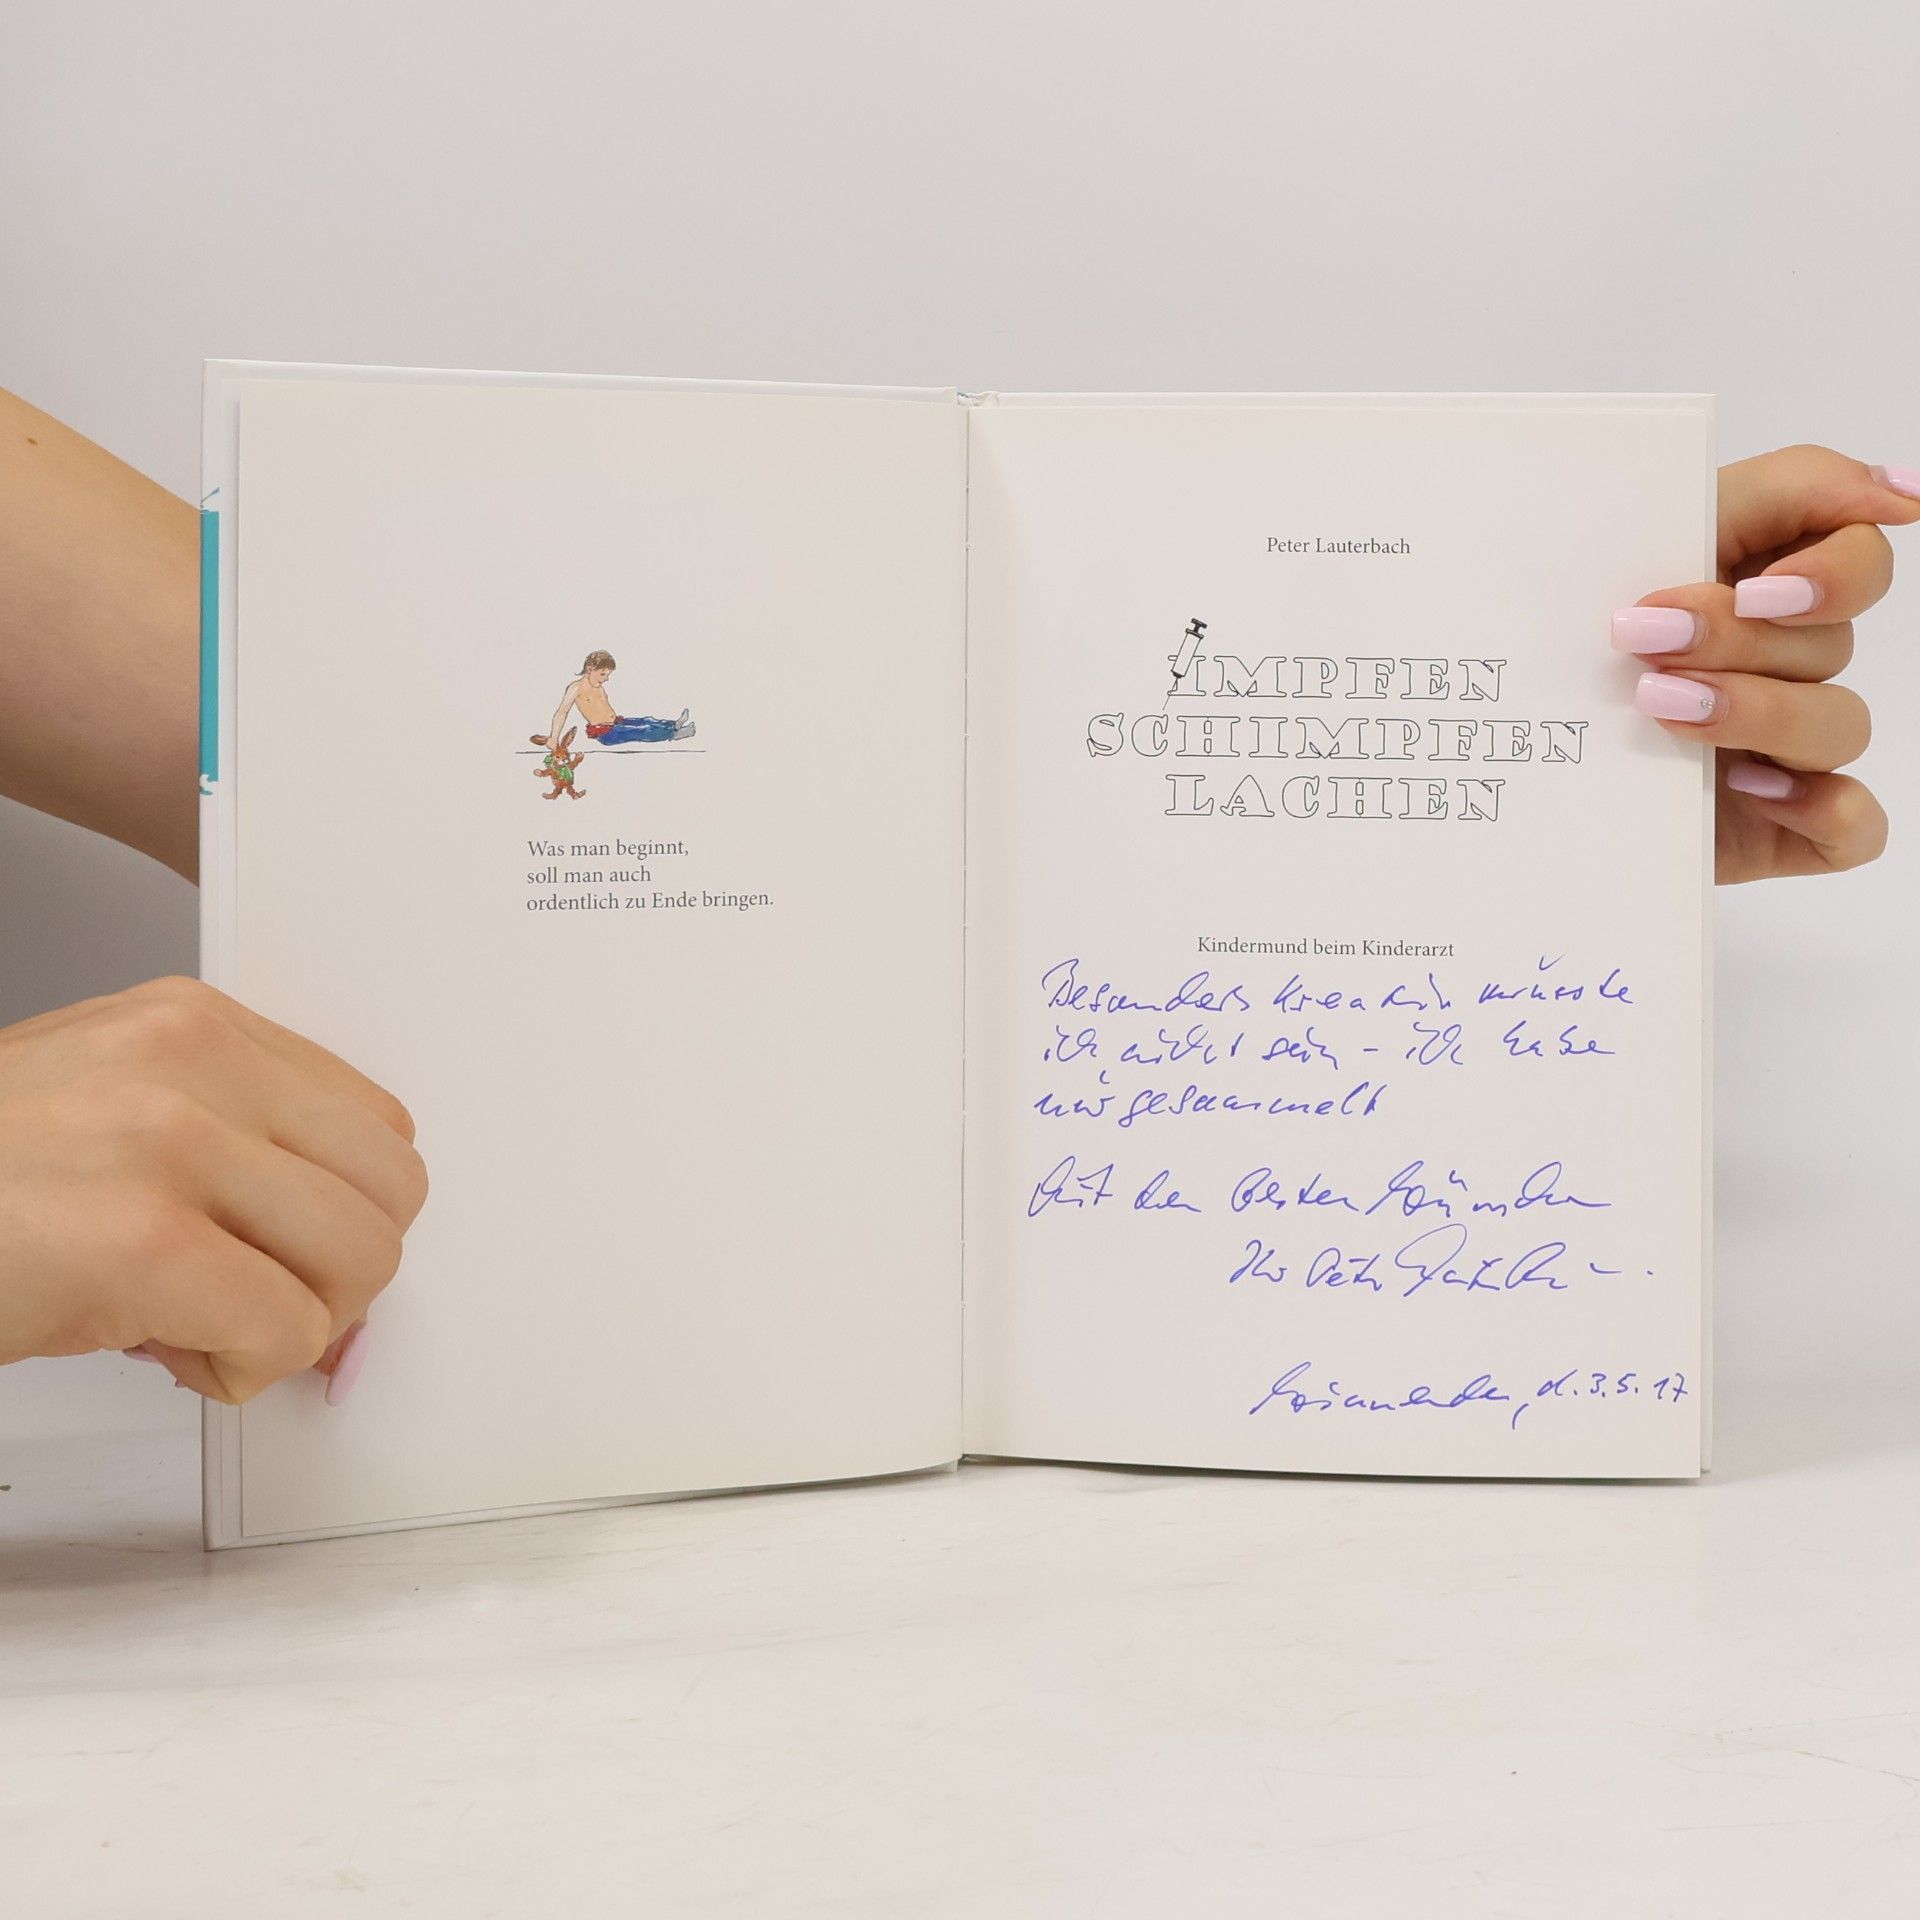 Was man beginnt,
soll man auch
ordentlich zu Ende bringen.
Peter Lauterbach
IMPFEN
SCHIMPFEN
LACHEN
Kindermund beim Kinderarzt
Besonders kreativ müsste
ich nicht sein – ich habe
nur gesammelt
Mit den besten Wünschen
Ihr Peter Lauterbach
d. 3.5.17